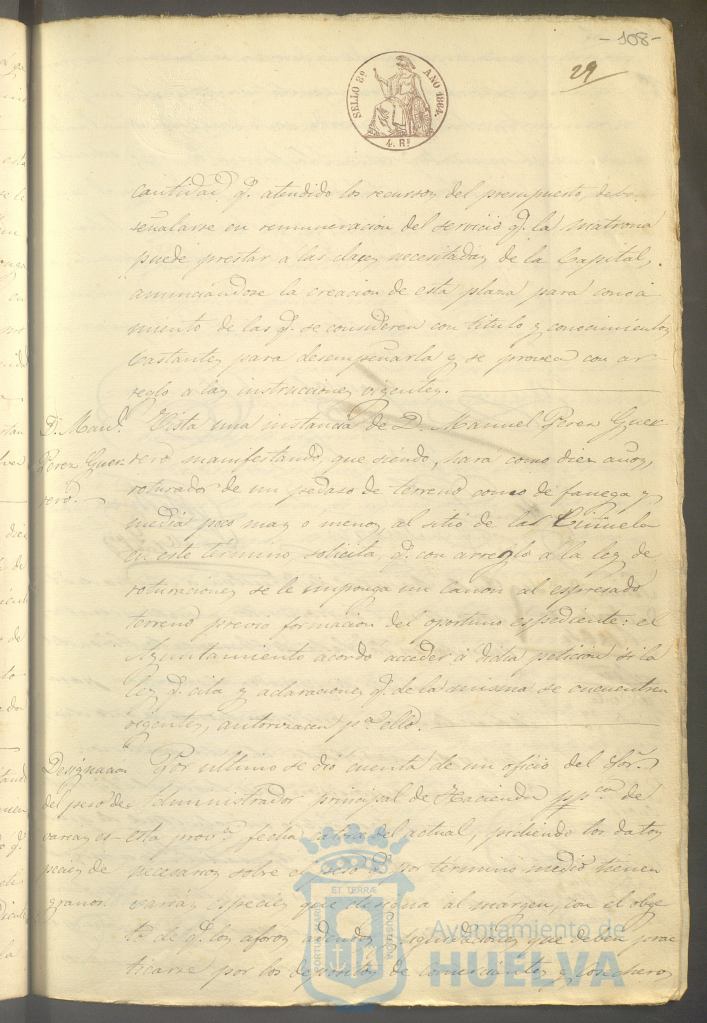 - 108 -
29
SELLO 8º AÑO 1864.
4. Rˢ
cantidad q. atendido los recursos del presupuesto, deba
señalarse en remuneracion del servicio q. la matrona
puede prestar á las clases necesitadas de la Capital,
anunciándose la creacion de esta plaza para conoci
miento de las q. se consideren con titulo y conocimientos
bastantes para desempeñarla y se provea con ar-
reglo a las instrucciones vigentes.
D. Manl. Perez Guer
rero.
Vista una instancia de D. Manuel Perez Guer
rero manifestando que siendo, hará como diez años,
roturador de un pedaso de terreno como de fanega y
media poco mas o menos al sitio de las
en este término solicita, q. con arreglo á la ley de
roturaciones se le imponga un canon al espresado
terreno previo formacion del oportuno espediente: el
Ayuntamiento acordó acceder á dicha peticion si la
ley q. cita y aclaraciones q. de la misma se encuentren
vigentes, autorizacen pª ello.
Designacion
del peso de
varias es-
pecies de
granos.
Por último se dió cuenta de un oficio del Sor.
Administrador principal de Hacienda ppca. de
esta provª fecha del actual, pidiendo los datos
necesarios sobre el peso q. por término medio tienen
varias especies que designa al margen, con el obje
to de q. los aforos y liquidaciones que deben prac
ticarse por los depositos de comerciantes y cosecheros
ET TERRÆ
PORTUS MARIS
CUSTODIA
Ayuntamiento de
HUELVA